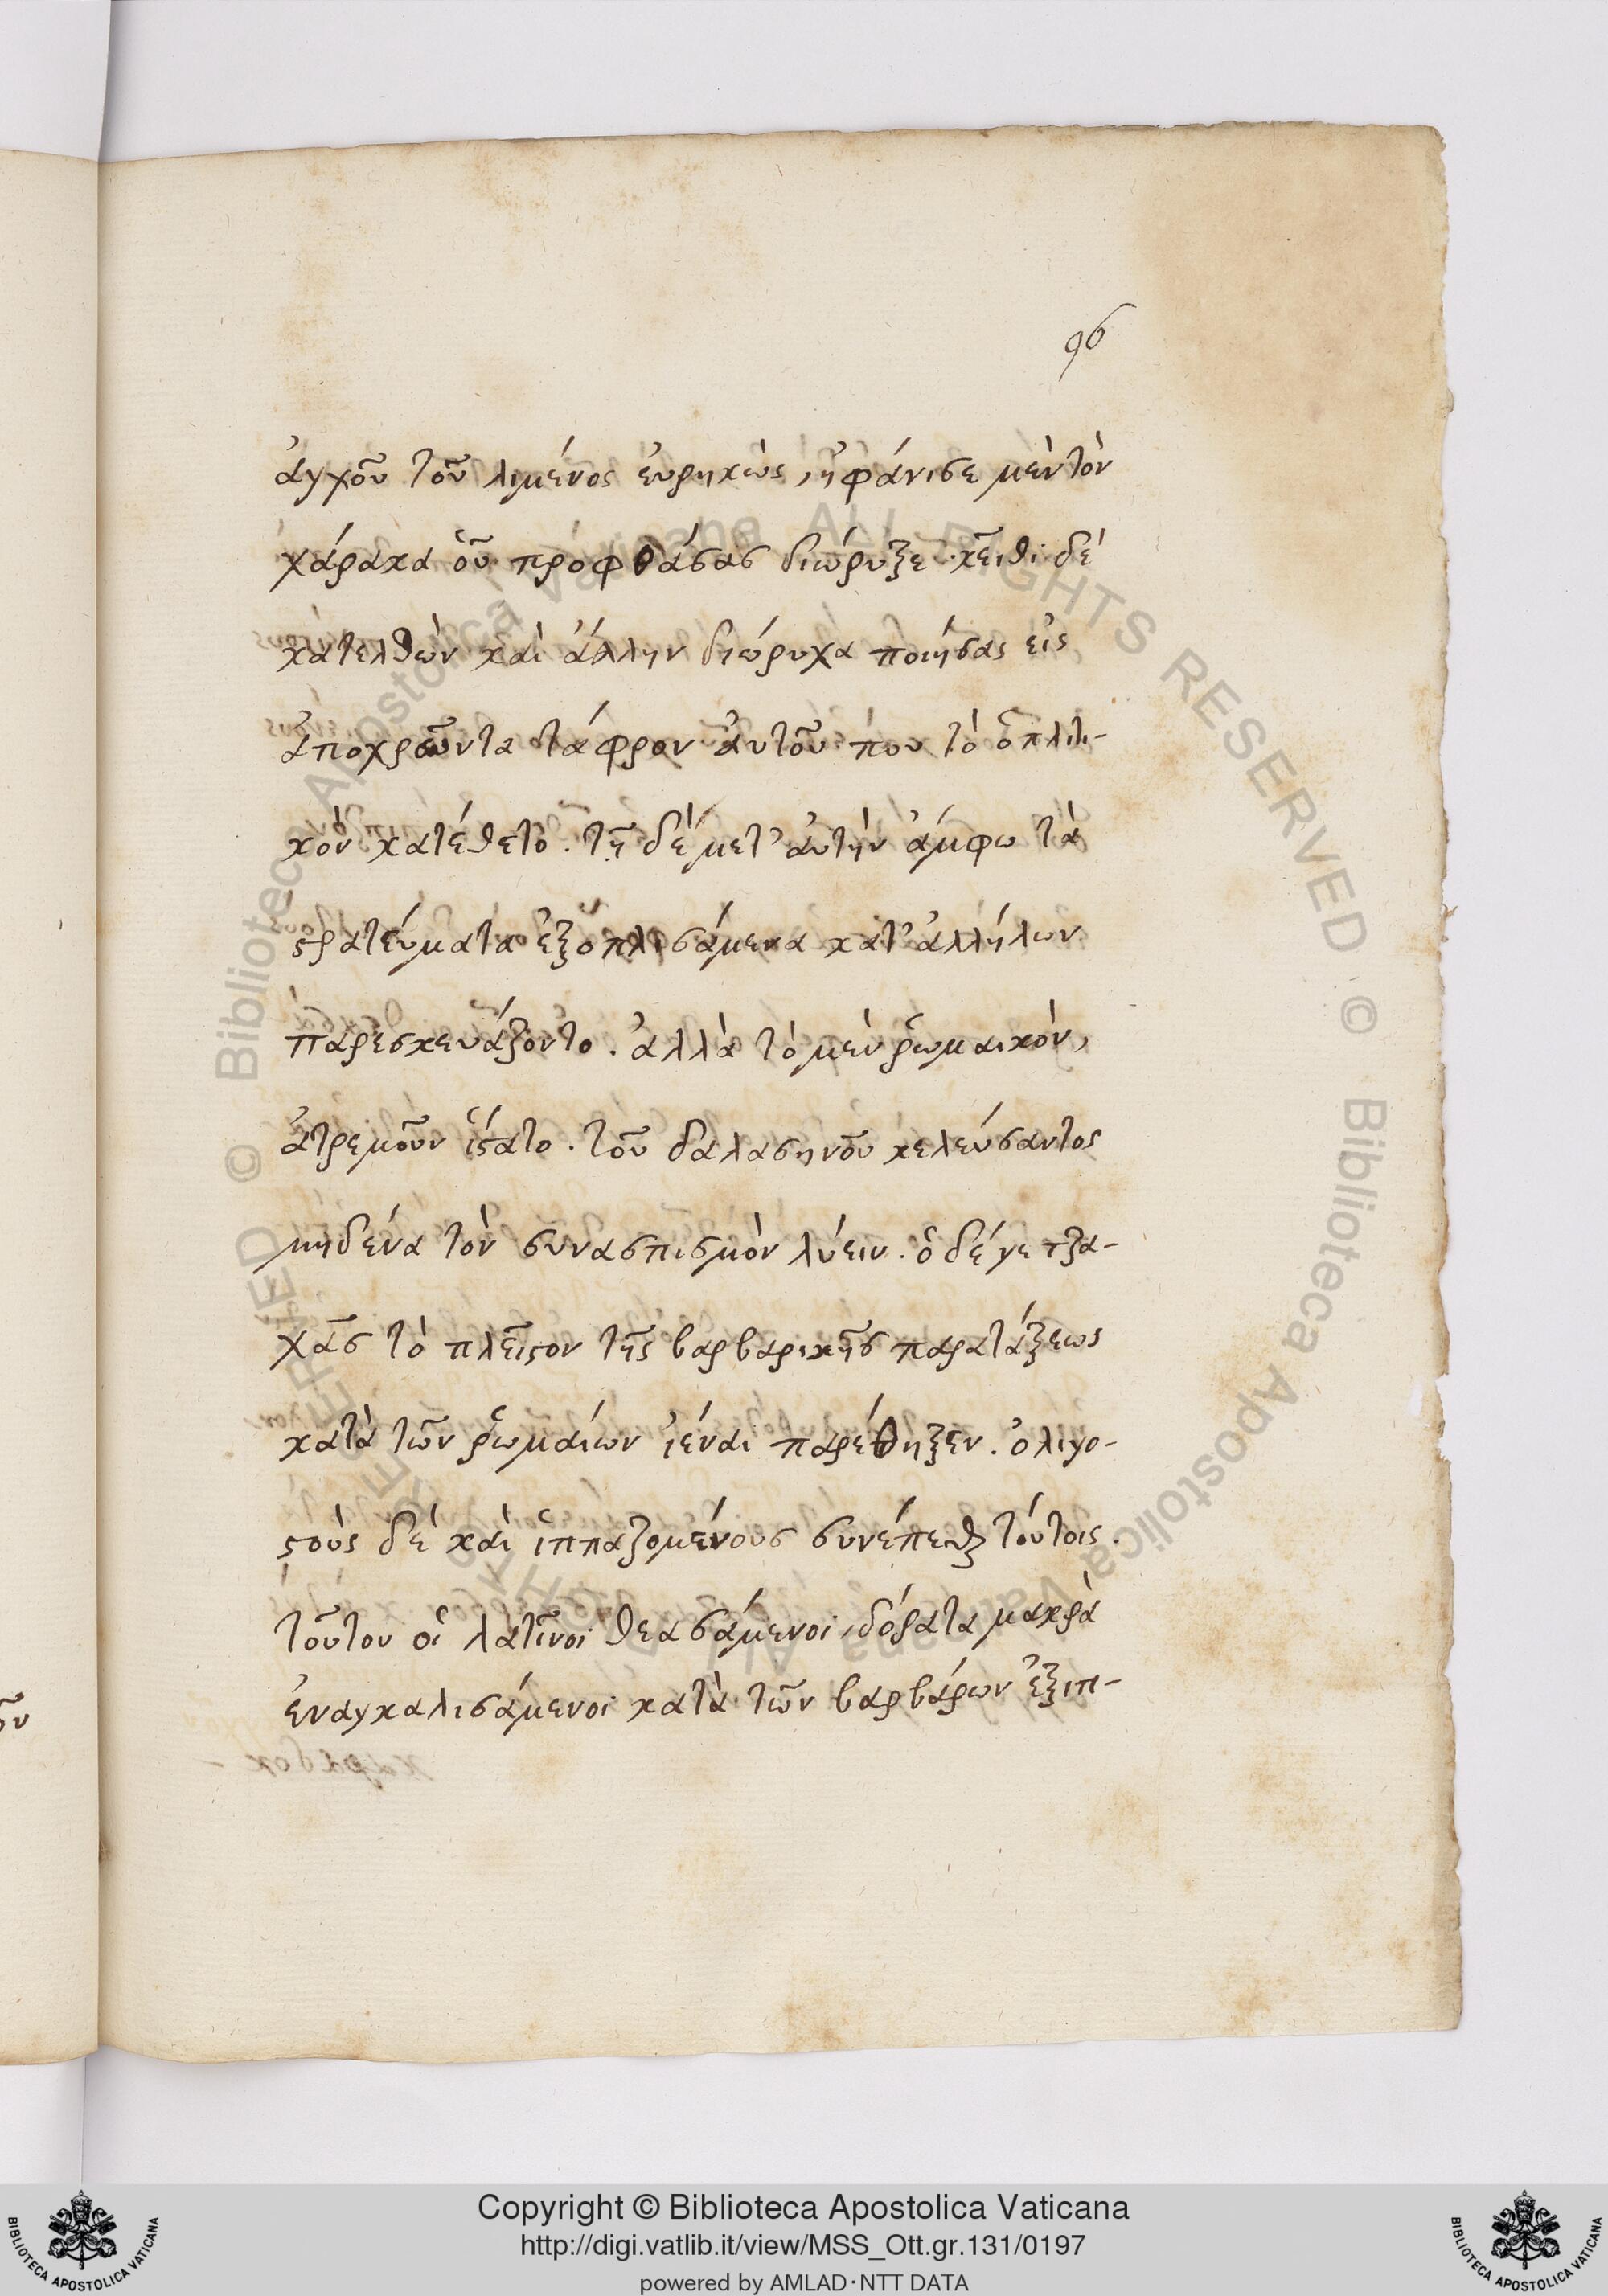 96
ἀγχοῦ τοῦ λιμένος ἑυρηκὼς, ἠφάνισε μὲν τὸν
χάρακα ὃν προφθάσας διώρυξε. κεῖθι δὲ
κατελθὼν καὶ ἄλλην διώρυχα ποιήσας εἰς
ἀποχρῶντα τάφρον ἀυτοῦ που τὸ ὁπλιτι-
κὸν κατέθετο. τῇ δὲ μετ' ἀυτὴν ἄμφω τὰ
στρατεύματα ἐξοπλισάμενα κατ' ἀλλήλων
παρεσκευάζοντο. ἀλλὰ τὸ μὲν ῥωμαικὸν,
ἀτρεμοῦν ἵστατο. τοῦ δαλασηνοῦ κελεύσαντος
μηδένα τὸν συνασπισμὸν λύειν. ὁ δέ γε τζα-
χᾶς τὸ πλεῖστον τῆς βαρβαρικῆς παρατάξεως
κατὰ τῶν ῥωμαίων ἰέναι παρέθηξεν. ὀλιγο-
στοὺς δὲ καὶ ἱππαζομένους συνέπεσθαι τούτοις.
τοῦτον οἱ λατῖνοι θεασάμενοι, δόρατα μακρὰ
ἐναγκαλισάμενοι κατὰ τῶν βαρβάρων ἐξιπ-
Copyright © Biblioteca Apostolica Vaticana
http://digi.vatlib.it/view/MSS_Ott.gr.131/0197
powered by AMLAD·NTT DATA
BIBLIOTECA APOSTOLICA VATICANA
BIBLIOTECA APOSTOLICA VATICANA